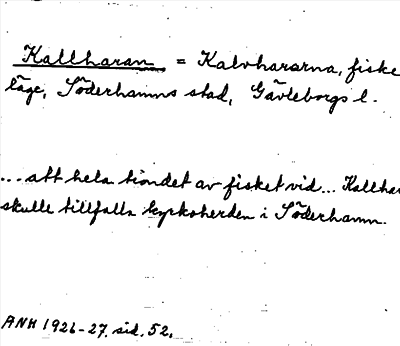 Kallharan = Kalvhararna, fiske
läge, Söderhamns stad, Gävleborgs l.
...att hela tiondet av fisket vid... Kallhar
skulle tillfalla kyrkoherden i Söderhamn.
ANH 1926-27. sid. 52.